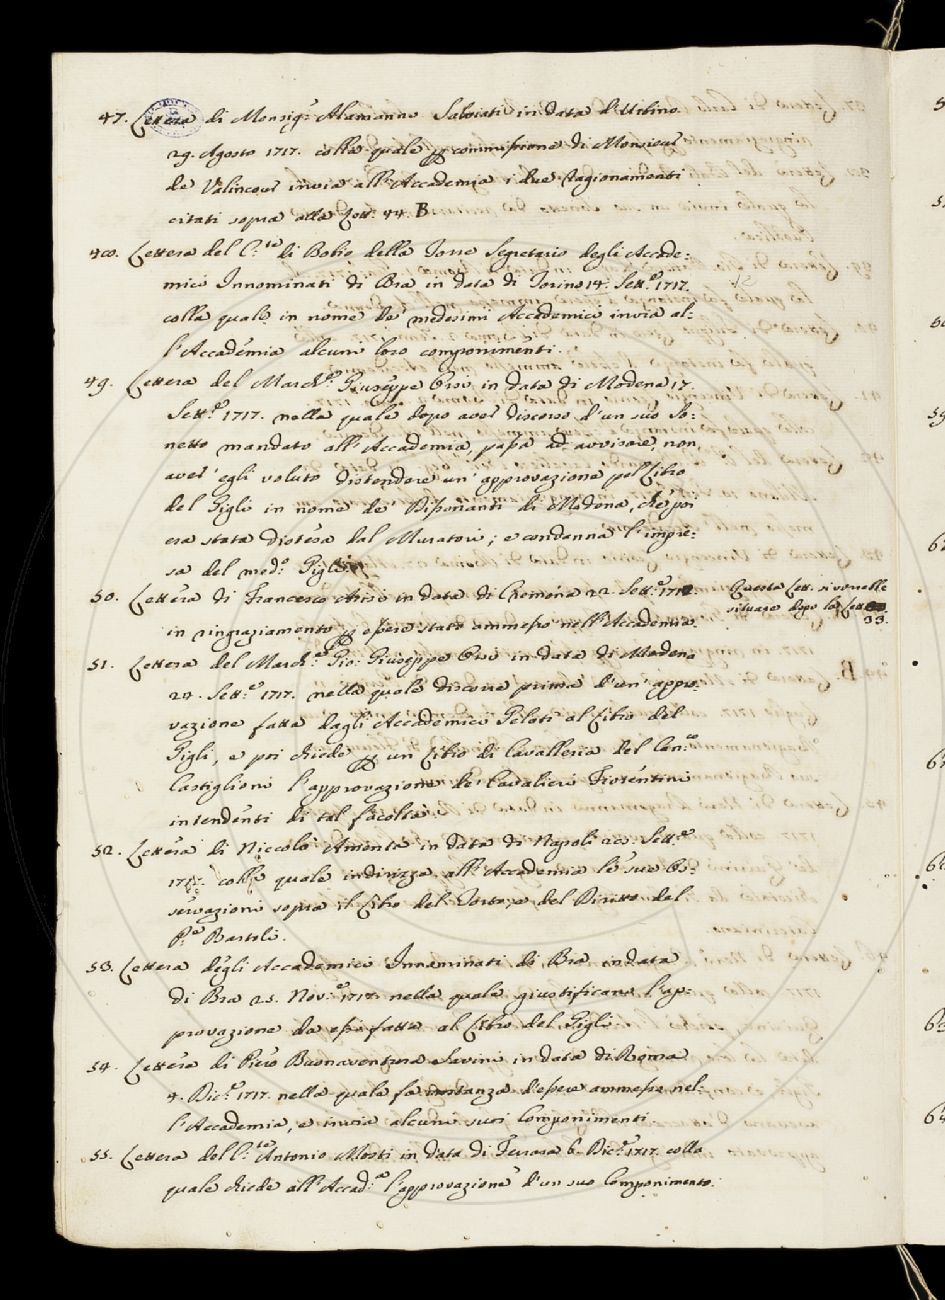 47. Lettera di Monsig.r Alamanno Salviati in data d'Urbino
29. Agosto 1717. colla quale per commissione di Monsieur
de Valincour invia all'Accademia i due Ragionamenti
citati sopra alla Lett. 44. B
48. Lettera del C.te di Robio della Torre Segretario degli Accade:
mici Innominati di Bra in data di Torino 14. Sett.e 1717.
colla quale in nome de' medesimi Accademici invia al:
l'Accademia alcuni loro componimenti.
49. Lettera del March.e Giuseppe Orsi in data di Modena 17.
Sett.e 1717. nella quale dopo aver discorso d'un suo So:
netto mandato all'Accademia, passa ad avvisare, non
aver' egli voluto distendere un' approvazione pel Libro
del Gigli in nome de' Dissonanti di Modena, che poi
era stata distesa dal Muratori; e condanna l'impre:
sa del med.o Gigli.
50. Lettera di Francesco Arisi in data di Cremona 22. Sett.e 171
in ringraziamento per essere stato ammesso nell'Accademia.
Questa Lett. si vorrebbe
situare dopo la Lett.
33.
51. Lettera del March.e Gio: Giuseppe Orsi in data di Modena
24. Sett.e 1717. nella quale discorre prima d'un' appro:
vazione fatta dagli Accademici Gelati al Libro del
Gigli, e poi chiede per un Libro di Cavalleria del Can.co
Castiglioni l'approvazione de' Cavalieri Fiorentini
intendenti di tal facoltà.
52. Lettera di Niccolò Amenta in data di Napoli 28. Sett.e
1717. colla quale indirizza all'Accademia le sue Os:
servazioni sopra il Libro del Torto, e del Diritto del
P.e Bartoli.
53. Lettera degli Accademici Innominati di Bra in data
di Bra 25. Nov.e 1717. nella quale giustificano l'ap:
provazione da essi fatta al Libro del Gigli.
54. Lettera di Piero Buonaventura Savini in data di Roma
4. Dic.e 1717. nella quale fa instanza d'essere ammesso nel:
l'Accademia, e invia alcuni suoi Componimenti.
55. Lettera del C.te Antonio Mosti in data di Ferrara 6. Dic.e 1717. colla
quale chiede all'Accad.a l'approvazione d'un suo Componimento.